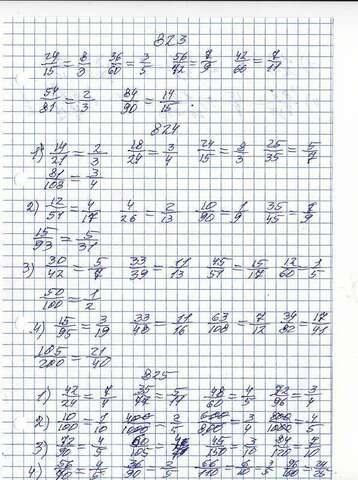 823
24/15 = 8/5 36/60 = 3/5 56/72 = 7/9 42/66 = 7/11
54/81 = 2/3 84/90 = 14/15
824
1) 14/21 = 2/3 18/24 = 3/4 24/15 = 8/3 25/35 = 5/7
81/108 = 3/4
2) 12/51 = 4/17 4/26 = 2/13 10/90 = 1/9 35/45 = 7/9
15/93 = 5/31
3) 30/42 = 5/7 33/39 = 11/13 45/51 = 15/17 12/60 = 1/5
50/100 = 1/2
4) 15/95 = 3/19 33/48 = 11/16 63/108 = 7/12 34/82 = 17/41
105/200 = 21/40
825
1) 42/24 = 7/4 35/77 = 5/11 48/60 = 4/5 72/96 = 3/4
2) 10/100 = 1/10 400/1000 = 2/5 600/800 = 3/4 800/1000 = 4/5
3) 72/90 = 4/5 60/105 = 45/150 = 3/10 84/120 = 7/10
4) 56/70 = 4/5 36/90 = 2/5 66/110 = 6/10 = 3/5